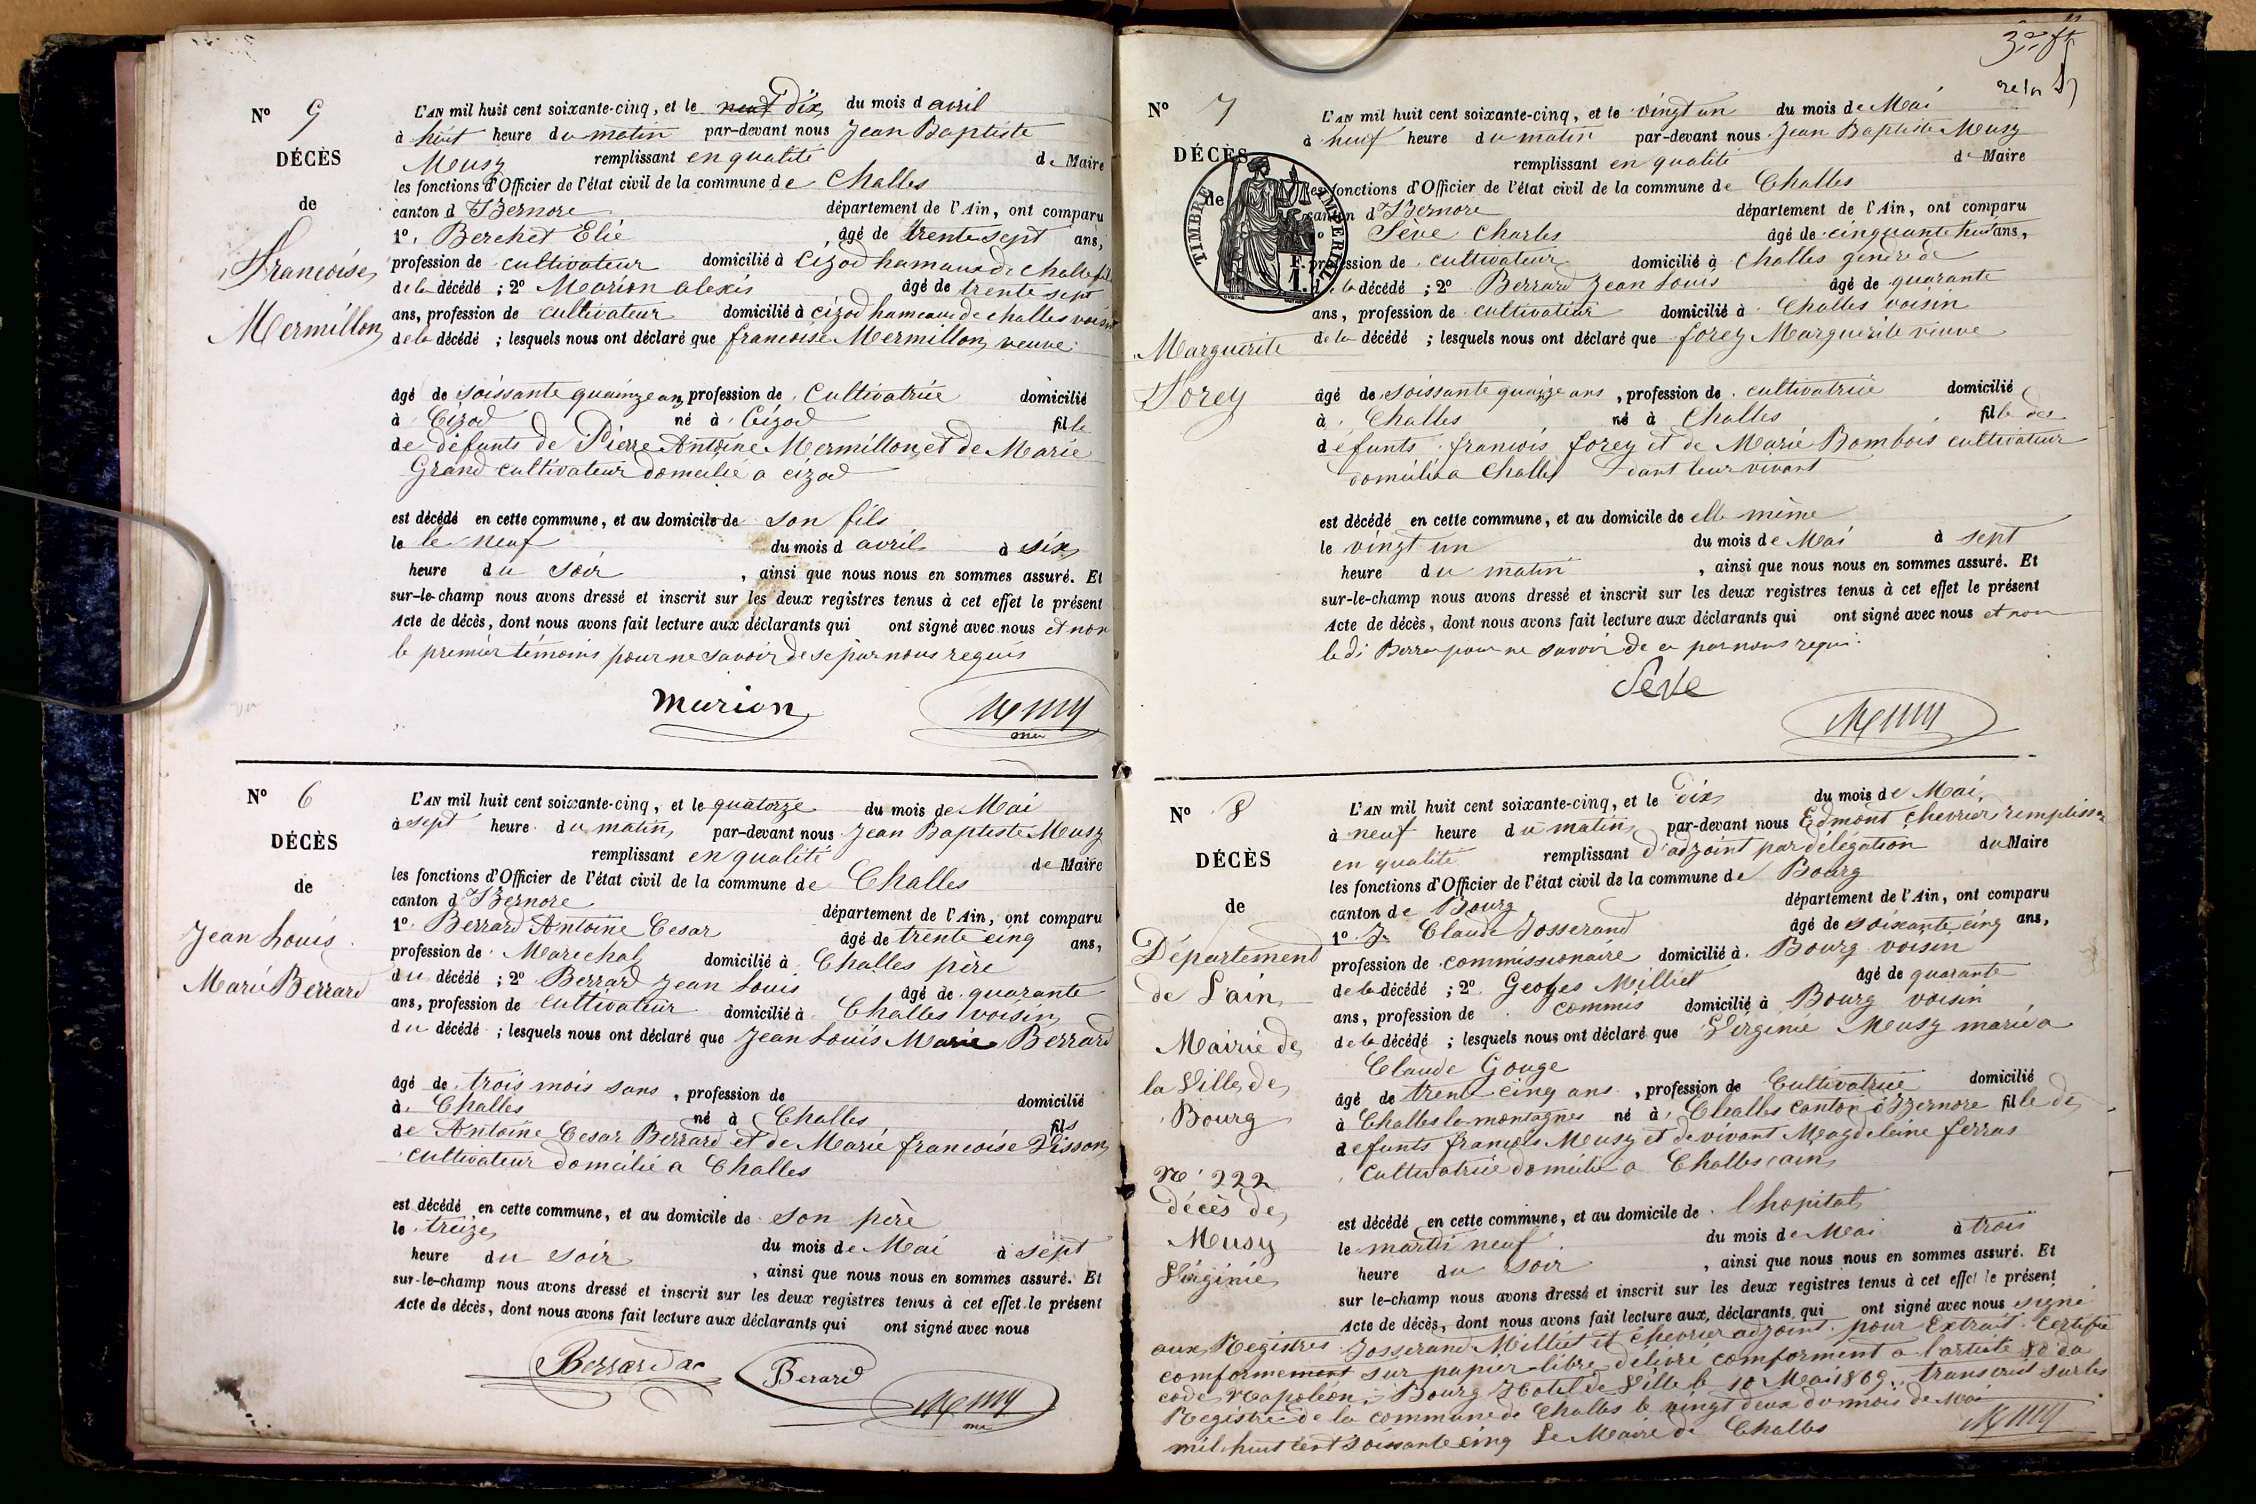 Nº 5
DÉCÈS
de
Francoise
Mermillon
L'AN mil huit cent soixante-cinq, et le neuf dix du mois d avril
à huit heure du matin par-devant nous Jean Baptiste
Meusy remplissant en qualité de Maire
les fonctions d'Officier de l'état civil de la commune de Challes
canton d'Izernore département de l'Ain, ont comparu
1º Berchet Elié âgé de trente sept ans,
profession de cultivateur domicilié à Cizod hamaux de challe fil
de la décédé ; 2º Marion alexis âgé de trente sept
ans, profession de cultivateur domicilié à cizod hameaux de challes voisin
de la décédé ; lesquels nous ont déclaré que francoise Mermillon veuve
âgé de soissante quainze an, profession de Cultivatrice domicilié
à Cizod né à Cizod fille
de défunts de Pierre Antoine Mermillon et de Marie
Grand cultivateur domcilié a cizod
est décédé en cette commune, et au domicile de son fils
le le neuf du mois d avril à six
heure du soir , ainsi que nous nous en sommes assuré. Et
sur-le-champ nous avons dressé et inscrit sur les deux registres tenus à cet effet le présent
Acte de décès, dont nous avons fait lecture aux déclarants qui ont signé avec nous et non
le premier témoins pour ne savoir de se par nous requis
Marion
Meusy
Nº 6
DÉCÈS
de
Jean Louis
Marie Berrard
L'AN mil huit cent soixante-cinq, et le quatorze du mois de Mai
à sept heure du matin par-devant nous Jean Baptiste Meusy
remplissant en qualité de Maire
les fonctions d'Officier de l'état civil de la commune de Challes
canton d'Izernore département de l'Ain, ont comparu
1º Berrard Antoine Cesar âgé de trente cinq ans,
profession de Marechal domicilié à Challes père
du décédé ; 2º Berrard Jean Louis âgé de quarante
ans, profession de cultivateur domicilié à Challes voisin
du décédé ; lesquels nous ont déclaré que Jean Louis Marie Berrard
âgé de trois mois sans , profession de domicilié
à Challes né à Challes fils
de Antoine Cesar Berrard et de Marie francoise
cultivateur domcilié a Challes
est décédé en cette commune, et au domicile de son père
le treize du mois de Mai à sept
heure du soir , ainsi que nous nous en sommes assuré. Et
sur-le-champ nous avons dressé et inscrit sur les deux registres tenus à cet effet le présent
Acte de décès, dont nous avons fait lecture aux déclarants qui ont signé avec nous
Berrard ac Berard
Meusy
Nº 7
DÉCÈS
de
TIMBRE IMPERIAL
Marguerite
Forey
L'AN mil huit cent soixante-cinq, et le vingt un du mois de Mai
à neuf heure du matin par-devant nous Jean Baptiste Meusy
remplissant en qualité de Maire
les fonctions d'Officier de l'état civil de la commune de Challes
canton d'Izernore département de l'Ain, ont comparu
Sève Charles âgé de cinquante huit ans,
profession de cultivateur domicilié à Challes gendre de
de la décédé ; 2º Berrard Jean Louis âgé de quarante
ans, profession de cultivateur domicilié à Challes voisin
de la décédé ; lesquels nous ont déclaré que forey Marguerite veuve
âgé de soissante quaizze ans , profession de cultivatrice domicilié
à Challes né à Challes fille des
défunts francois forey et de Marie Bombois cultivateur
domcilié a Challes dant leur vivant
est décédé en cette commune, et au domicile de elle même
le vingt un du mois de Mai à sept
heure du matin , ainsi que nous nous en sommes assuré. Et
sur-le-champ nous avons dressé et inscrit sur les deux registres tenus à cet effet le présent
Acte de décès, dont nous avons fait lecture aux déclarants qui ont signé avec nous et non
le di Berrar pour ne savoir de ce par nous requi
Sève
Meusy
Nº 8
DÉCÈS
de
Département
de L'ain
Mairie de
la Ville de
Bourg
Nº 222
décès de
Meusy
Virginie
L'AN mil huit cent soixante-cinq, et le dix du mois de Mai
à neuf heure du matin par-devant nous Edmont chevrier remplissa
en qualité remplissant d'adjoint par délégation du Maire
les fonctions d'Officier de l'état civil de la commune de Bourg
canton de Bourg département de l'Ain, ont comparu
1º Claude Josserand âgé de soixante cinq ans,
profession de commissionaire domicilié à Bourg voisin
de la décédé ; 2º Georges Milliet âgé de quarante
ans, profession de commis domicilié à Bourg voisin
de la décédé ; lesquels nous ont déclaré que Virginie Meusy marié a
Claude Gouge
âgé de trente cinq ans , profession de Cultivatrice domicilié
à Challes la montagnes né à Challes canton d'Izernore fille de
défunts francois Meusy et de vivant Magdeleine ferras
cultivatrice domcilié a Challes (ain)
est décédé en cette commune, et au domicile de l'hopital
le mardi neuf du mois de Mai à trois
heure du soir , ainsi que nous nous en sommes assuré. Et
sur le-champ nous avons dressé et inscrit sur les deux registres tenus à cet effet le présent
Acte de décès, dont nous avons fait lecture aux déclarants qui ont signé avec nous signé
aux Registres Josserand Milliet et chevrier adjoint pour Extrait Certifié
comformement sur papier libre délivré comforment a l'article 80 du
code Napoléon Bourg Hotel de Ville le 10 Mai 1865 transcrit sur les
Registre de la commune de Challes le vingt deux du mois de Mai
mil huit cent soissante cinq Le Maire de Challes
Meusy